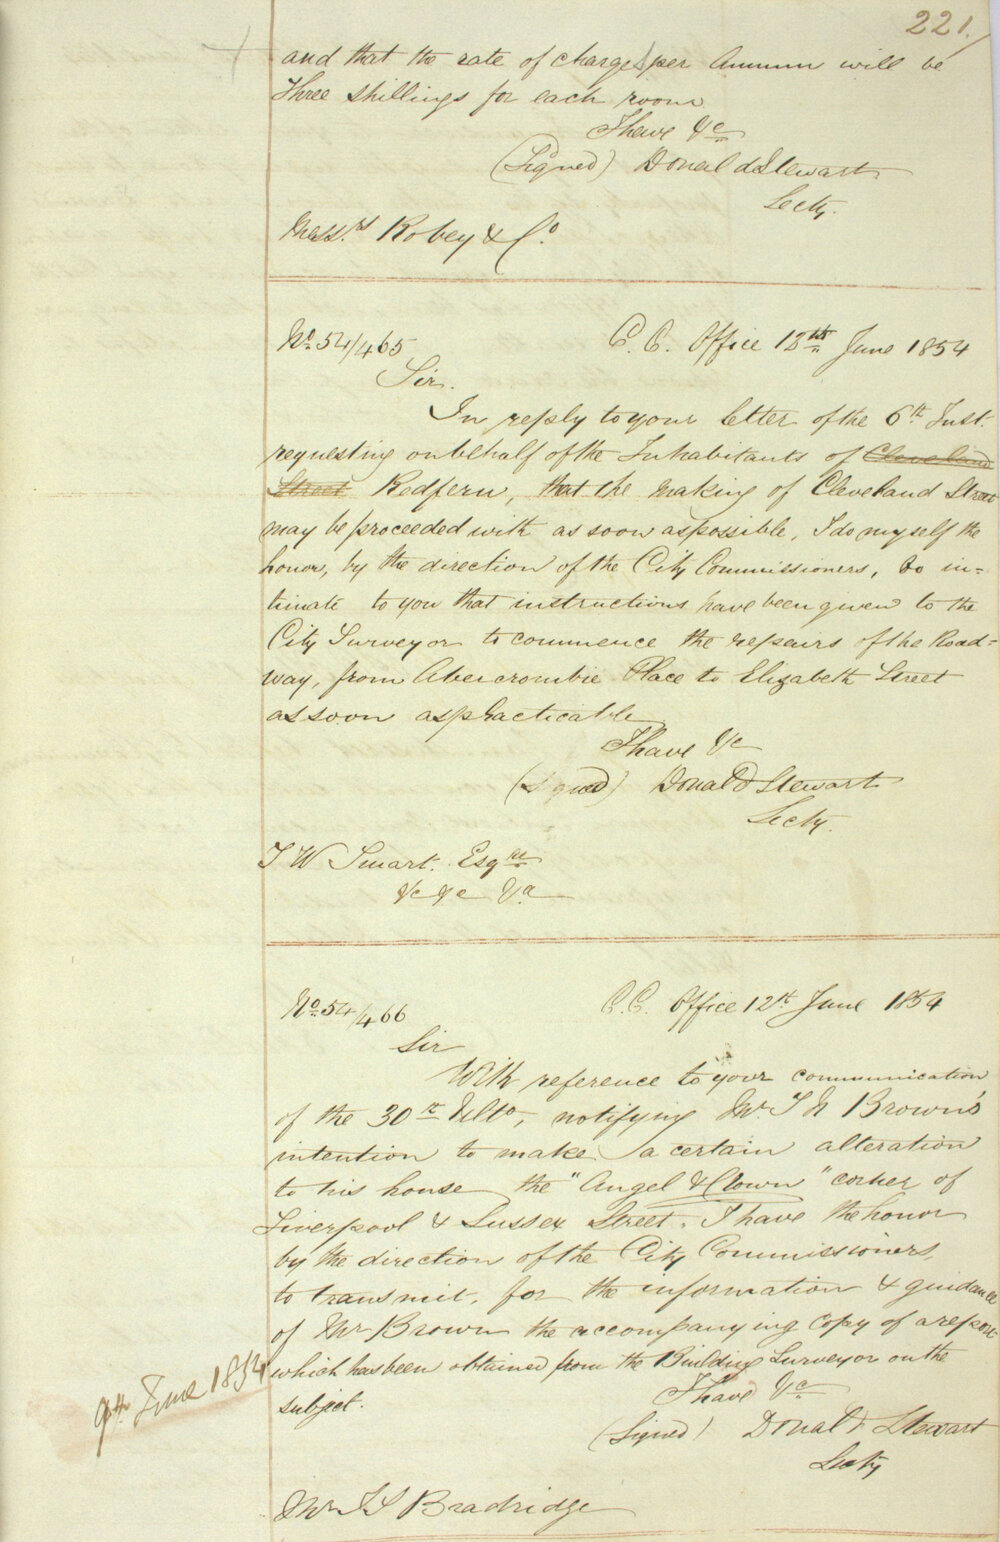 221.
and that the rate of charge per Annum will be
Three shillings for each room
I have &c
(Signed) Donald Stewart
Secty.
Messrs. Robey & Co.
No. 54/465
C. C. Office 12th June 1854
Sir.
In reply to your letter of the 6th Inst.
requesting on behalf of the Inhabitants of Cleveland
Street Redfern, that the making of Cleveland Street
may be proceeded with as soon as possible, I do myself the
honor, by the direction of the City Commissioners, to in=
timate to you that instructions have been given to the
City Surveyor to commence the repairs of the Road=
way, from Abercrombie Place to Elizabeth Street
as soon as practicable
I have &c
(Signed) Donald Stewart
Secty.
T W Smart. Esqre
&c &c &c
No. 54/466
C. C. Office 12th June 1854
Sir
With reference to your communication
of the 30th Ulto, notifying Mr T N Brown's
intention to make a certain alteration
to his house the "Angel & Crown" corner of
Liverpool & Sussex Street. I have the honor
by the direction of the City Commissioners
to transmit, for the information & guidance
of Mr Brown the accompanying Copy of a report
which has been obtained from the Building Surveyor on the
subject.
9th June 1854
I have &c
(Signed) Donald Stewart
Secty
Mr Bradridge